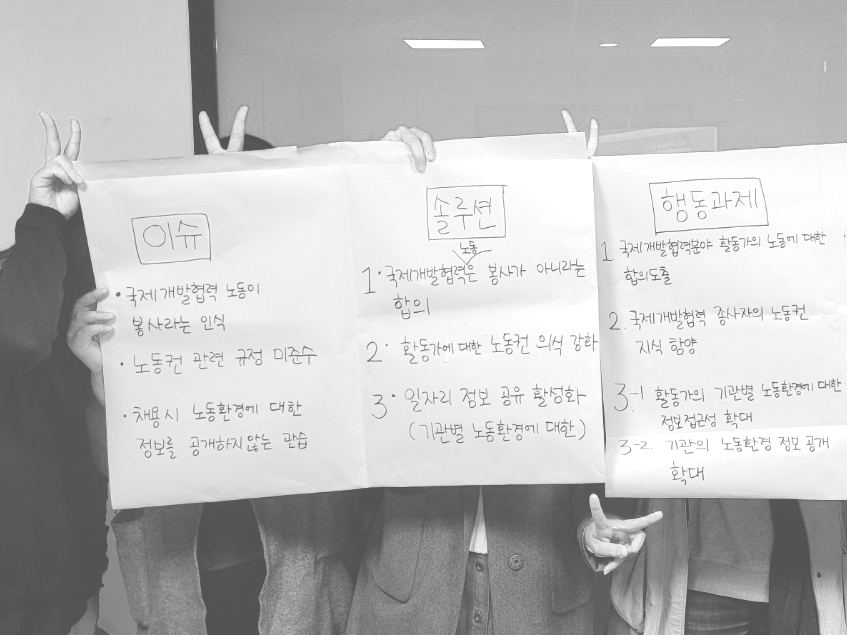 이슈
• 국제개발협력 노동이
봉사라는 인식
• 노동권 관련 규정 미준수
• 채용시 노동환경에 대한
정보를 공개하지 않는 관습
솔루션
노동
1. 국제개발협력은 봉사가 아니라는
합의
2. 활동가에 대한 노동권 의식 강화
3. 일자리 정보 공유 활성화
(기관별 노동환경에 대한)
행동과제
1. 국제개발협력분야 활동가의 노동에 대한
합의도출
2. 국제개발협력 종사자의 노동권
지식 함양
3-1 활동가의 기관별 노동환경에 대한
정보접근성 확대
3-2. 기관의 노동환경 정보 공개
확대